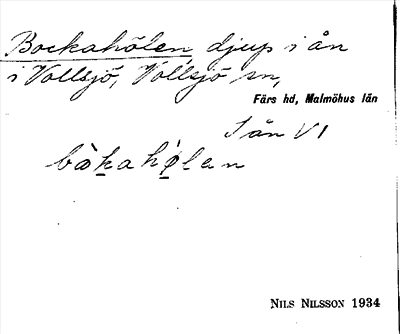 Bockahölen djup i ån
i Vollsjö, Vollsjö sn,
Färs hd, Malmöhus län
I ån VI
bòkahølen
NILS NILSSON 1934